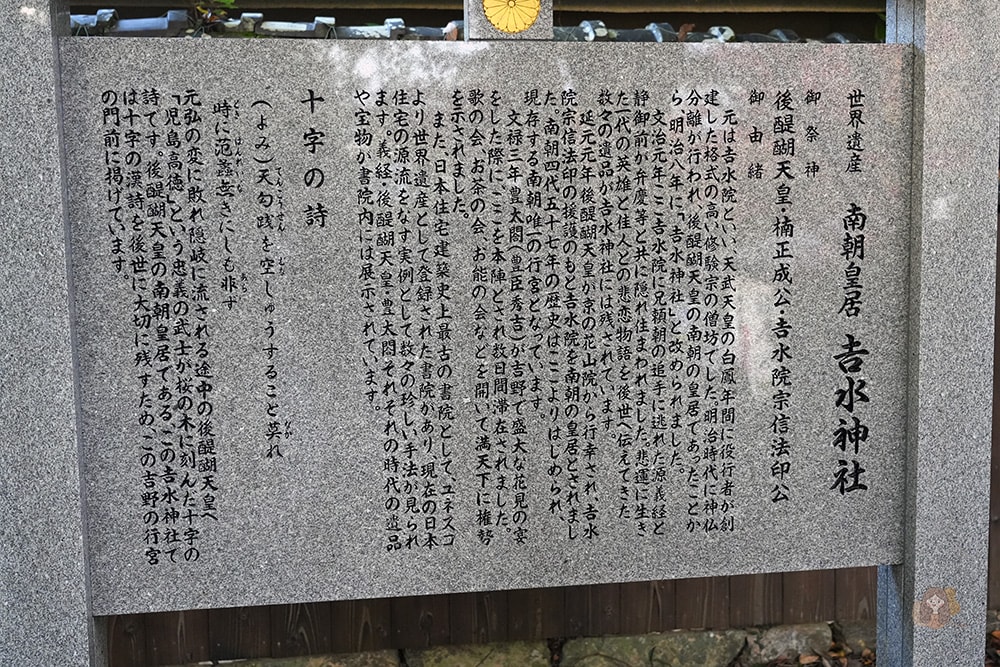 世界遺産　南朝皇居　吉水神社
御祭神
後醍醐天皇・楠正成公・吉水院宗信法印公
御由緒
元は吉水院といい、天武天皇の白鳳年間に役行者が創
建した格式の高い修験宗の僧坊でした。明治時代に神仏
分離が行われ、後醍醐天皇の南朝の皇居であったことか
ら、明治八年に「吉水神社」と改められました。
文治元年ここ吉水院に兄頼朝の追手に逃れた源義経と
静御前が弁慶等と共に隠れ住まわれました。悲運に生き
た一代の英雄と佳人との悲恋物語を後世へ伝えてきた
数々の遺品が吉水神社には残されています。
延元元年後醍醐天皇が京の花山院から行幸され、吉水
院宗信法印の援護のもと吉水院を南朝の皇居とされまし
た。南朝四代五十七年の歴史はここよりはじめられ、
現存する南朝唯一の行宮となっています。
文禄三年豊太閤(豊臣秀吉)が吉野で盛大な花見の宴
をした際に、ここを本陣とされ数日間滞在されました。
歌の会、お茶の会、お能の会などを開いて満天下に権勢
を示されました。
また、日本住宅建築史上最古の書院として、ユネスコ
より世界遺産として登録された書院があり、現在の日本
住宅の源流をなす実例として数々の珍しい手法が見られ
ます。義経・後醍醐天皇・豊太閤それぞれの時代の遺品
や宝物が書院内には展示されています。
十字の詩
(よみ)天勾践を空しゅうすること莫れ
てんこうせん むな なか
時に范蠡無きにしも非ず
とき はんれいな あら
元弘の変に敗れ隠岐に流される途中の後醍醐天皇へ
「児島高徳」という忠義の武士が桜の木に刻んだ十字の
詩です。後醍醐天皇の南朝皇居である、この吉水神社で
は十字の漢詩を後世に大切に残すため、この吉野の行宮
の門前に掲げています。